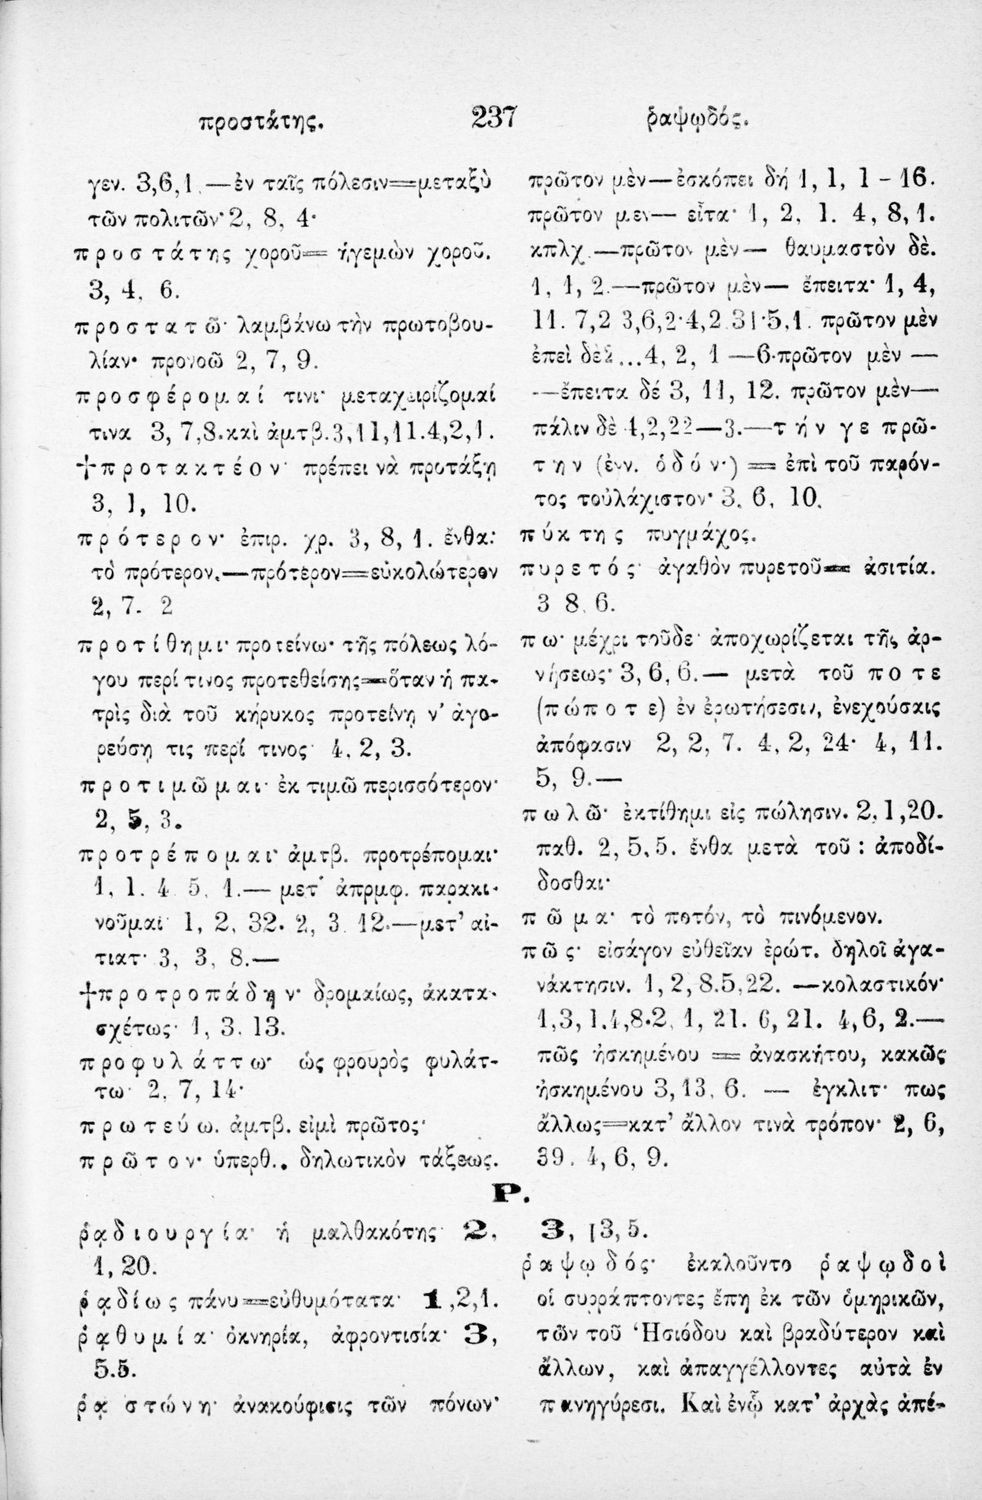 προστάτης. 237 ῥαψῳδός.
γεν. 3,6,1.—ἐν ταῖς πόλεσιν=μεταξὺ
τῶν πολιτῶν· 2, 8, 4·
προστάτης χοροῦ= ἡγεμὼν χοροῦ.
3, 4, 6.
προστατῶ· λαμβάνω τὴν πρωτοβου-
λίαν· προνοῶ 2, 7, 9.
προσφέρομαί τινι· μεταχειρίζομαί
τινα 3, 7,8.καὶ ἀμτβ.3,11,11.4,2,1.
†προτακτέον· πρέπει νὰ προτάξῃ
3, 1, 10.
πρότερον· ἐπιρ. χρ. 3, 8, 1. ἔνθα:
τὸ πρότερον.—πρότερον=εὐκολώτερον
2, 7. 2
προτίθημι· προτείνω· τῆς πόλεως λό-
γου περί τινος προτεθείσης=ὅταν ἡ πα-
τρὶς διὰ τοῦ κήρυκος προτείνῃ ν' ἀγο-
ρεύσῃ τις περί τινος· 4, 2, 3.
προτιμῶμαι· ἐκτιμῶ περισσότερον·
2, 5, 3.
προτρέπομαι· ἀμτβ. προτρέπομαι·
1, 1. 4 5, 1.— μετ' ἀπρμφ. παρακι-
νοῦμαι· 1, 2, 32. 2, 3 12.—μετ' αἰ-
τιατ· 3, 3, 8.—
†προτροπάδην· δρομαίως, ἀκατα-
σχέτως· 1, 3. 13.
προφυλάττω· ὡς φρουρὸς φυλάτ-
τω· 2, 7, 14·
πρωτεύω. ἀμτβ. εἰμὶ πρῶτος·
πρῶτον· ὑπερθ.. δηλωτικὸν τάξεως.
πρῶτον μὲν—ἐσκόπει δή 1, 1, 1 - 16.
πρῶτον μεν— εἶτα· 1, 2, 1. 4, 8,1.
κπλχ.—πρῶτον μὲν— θαυμαστὸν δὲ.
1, 1, 2.—πρῶτον μὲν— ἔπειτα· 1, 4,
11. 7,2 3,6,2·4,2 31·5,1. πρῶτον μὲν
ἐπεὶ δὲ...4, 2, 1 —6·πρῶτον μὲν —
—ἔπειτα δέ 3, 11, 12. πρῶτον μὲν—
πάλιν δὲ 4,2,22—3.—τήν γε πρώ-
την (ἐνν. ὁδόν·) = ἐπὶ τοῦ παρόν-
τος τοὐλάχιστον· 3, 6, 10.
πύκτης πυγμάχος.
πυρετός· ἀγαθὸν πυρετοῦ= ἀσιτία.
3 8, 6.
πω· μέχρι τοῦδε· ἀποχωρίζεται τῆς ἀρ-
νήσεως· 3, 6, 6.— μετὰ τοῦ ποτε
(πώποτε) ἐν ἐρωτήσεσιν, ἐνεχούσαις
ἀπόφασιν 2, 2, 7. 4, 2, 24· 4, 11.
5, 9.—
πωλῶ· ἐκτίθημι εἰς πώλησιν. 2,1,20.
παθ. 2, 5,5. ἔνθα μετὰ τοῦ : ἀποδί-
δοσθαι·
πῶμα· τὸ ποτόν, τὸ πινόμενον.
πῶς· εἰσάγον εὐθεῖαν ἐρώτ. δηλοῖ ἀγα-
νάκτησιν. 1,2,8.5,22. —κολαστικόν·
1,3,1.4,8·2, 1, 21. 6, 21. 4,6, 2.—
πῶς ἠσκημένου = ἀνασκήτου, κακῶς
ἠσκημένου 3,13, 6. — ἐγκλιτ· πως
ἄλλως=κατ' ἄλλον τινὰ τρόπον· 2, 6,
39. 4, 6, 9.
Ρ.
ῥᾳδιουργία· ἡ μαλθακότης· 2,
1, 20.
ῥᾳδίως πάνυ=εὐθυμότατα· 1,2,1.
ῥᾳθυμία· ὀκνηρία, ἀφροντισία· 3,
5.5.
ῥᾳστώνη· ἀνακούφισις τῶν πόνων·
3, [3, 5.
ῥαψῳδός· ἐκαλοῦντο ῥαψῳδοὶ
οἱ συρράπτοντες ἔπη ἐκ τῶν ὁμηρικῶν,
τῶν τοῦ Ἡσιόδου καὶ βραδύτερον καὶ
ἄλλων, καὶ ἀπαγγέλλοντες αὐτὰ ἐν
πανηγύρεσι. Καὶ ἐνῷ κατ' ἀρχὰς ἀπέ-